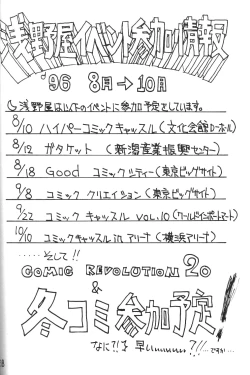 浅野屋イベント参加情報
'96 8月→10月
浅野屋は以下のイベントに参加予定をしています。
8/10 ハイパーコミックキャッスル(文化会館
8/12 ガタケット (新潟産業振興センター)
8/18 Good コミックシティー(東京ビッグサイト)
9/8 コミック クリエイション(東京ビッグサイト)
9/22 コミック キャッスル VOL.10 (ワールドインポートマート)
10/10 コミックキャッスル in アリーナ (横浜アリーナ)
.....そして!!
COMIC REVOLUTION 20
&
冬コミ参加予定!
なに?!まだ早いぃぃぃぃぃ?!!...ですか...